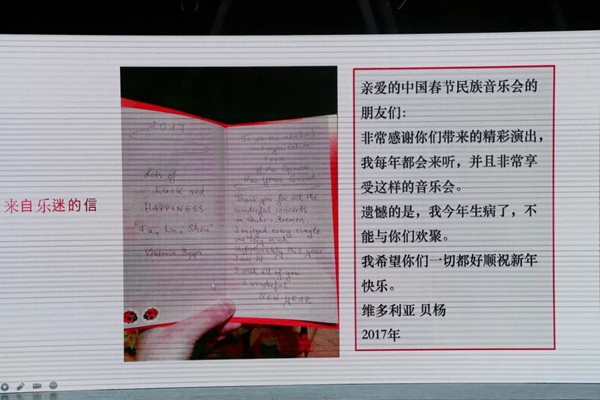 来自乐迷的信
2017
Lots of
Luck and
HAPPINESS
"Fu, Lu, Shou"
of the
New Year Concert
Thank you for all the
wonderful concerts
in Bremen
I enjoyed every single
one very much
Unfortunately this year
I am ill
I wish all of you
a wonderful
NEW YEAR
亲爱的中国春节民族音乐会的
朋友们:
非常感谢你们带来的精彩演出,
我每年都会来听，并且非常享
受这样的音乐会。
遗憾的是，我今年生病了，不
能与你们欢聚。
我希望你们一切都好顺祝新年
快乐。
维多利亚 贝杨
2017年